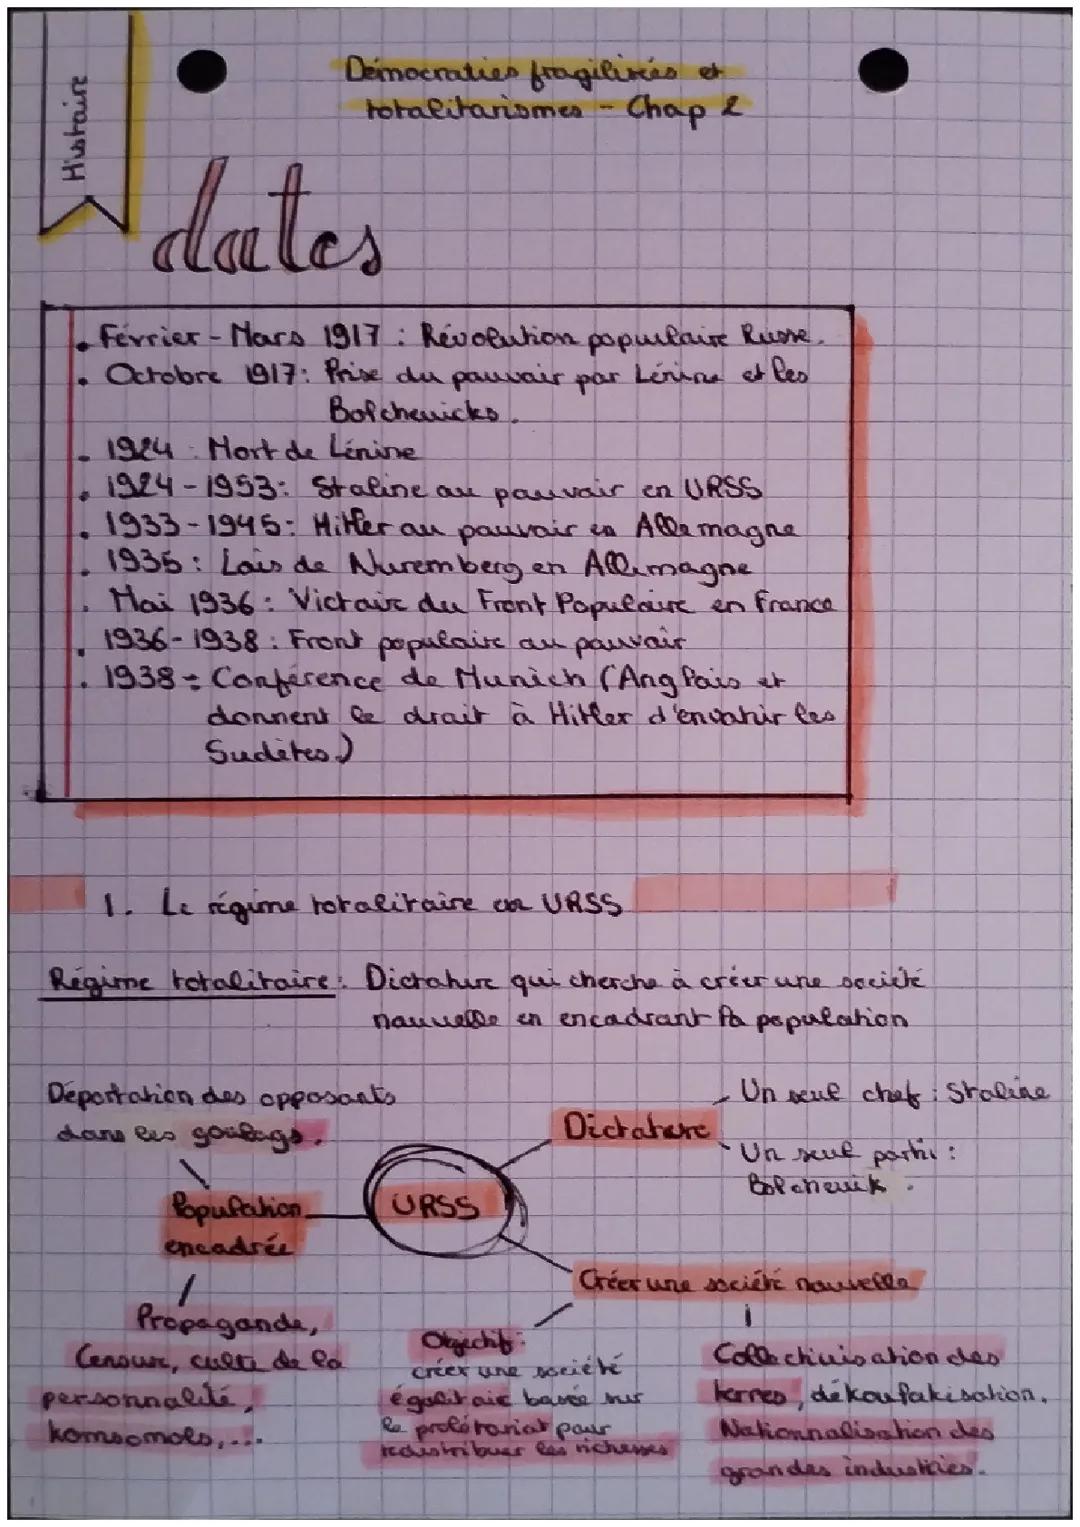 Histoire
Démocraties fragilisées et
totalitarismes - Chap 2
dates
. Février - Mars 1917 : Révolution populaire Russe.
. Octobre 1917 : Prise du pouvoir par Lénine et les
Bolchevicks.
. 1924 : Mort de Lénine
. 1924 - 1953 : Staline au pouvoir en URSS
. 1933 - 1945 : Hitler au pouvoir en Allemagne
. 1935 : Lois de Nuremberg en Allemagne
. Mai 1936 : Victoire du Front Populaire en France
. 1936 - 1938 : Front populaire au pouvoir
. 1938 : Conférence de Munich (Anglais et
donnent le droit à Hitler d'envahir les
Sudètes.)
1. Le régime totalitaire en URSS
Régime totalitaire : Dictature qui cherche à créer une société
nouvelle en encadrant la population
Déportation des opposants
dans les goulags.
Dictature
- Un seul chef : Staline
- Un seul parti :
Bolchevik.
URSS
Population
encadrée
Créer une société nouvelle
Propagande,
Censure, culte de la
personnalité,
komsomols,...
Objectif :
créer une société
égalitaire basée sur
le prolétariat pour
redistribuer les richesses
Collectivisation des
terres, dékoulakisation.
Nationnalisation des
grandes industries.